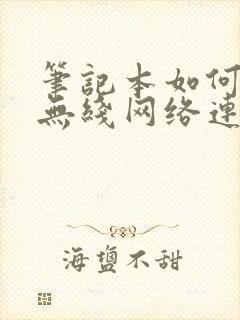 筆記本如何
無綫网络連
海鹽不甜